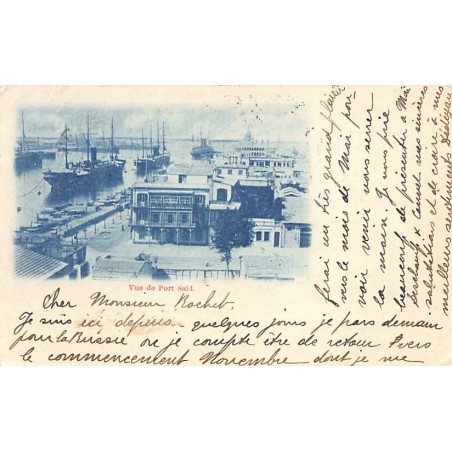 Vue de Port Saïd.
Cher Monsieur Rochet.
Je suis ici depuis quelques jours je pars demain
pour la Russie ou je compte être de retour vers
le commencement Novembre dont je me
ferai un très grand plaisir
vers le mois de Mai pou-
voir venir vous serrer
la main. Je vous prie
beaucoup de présenter à Mme
& Camul mes sincères
salutations et de croire à mes
meilleurs sentiments